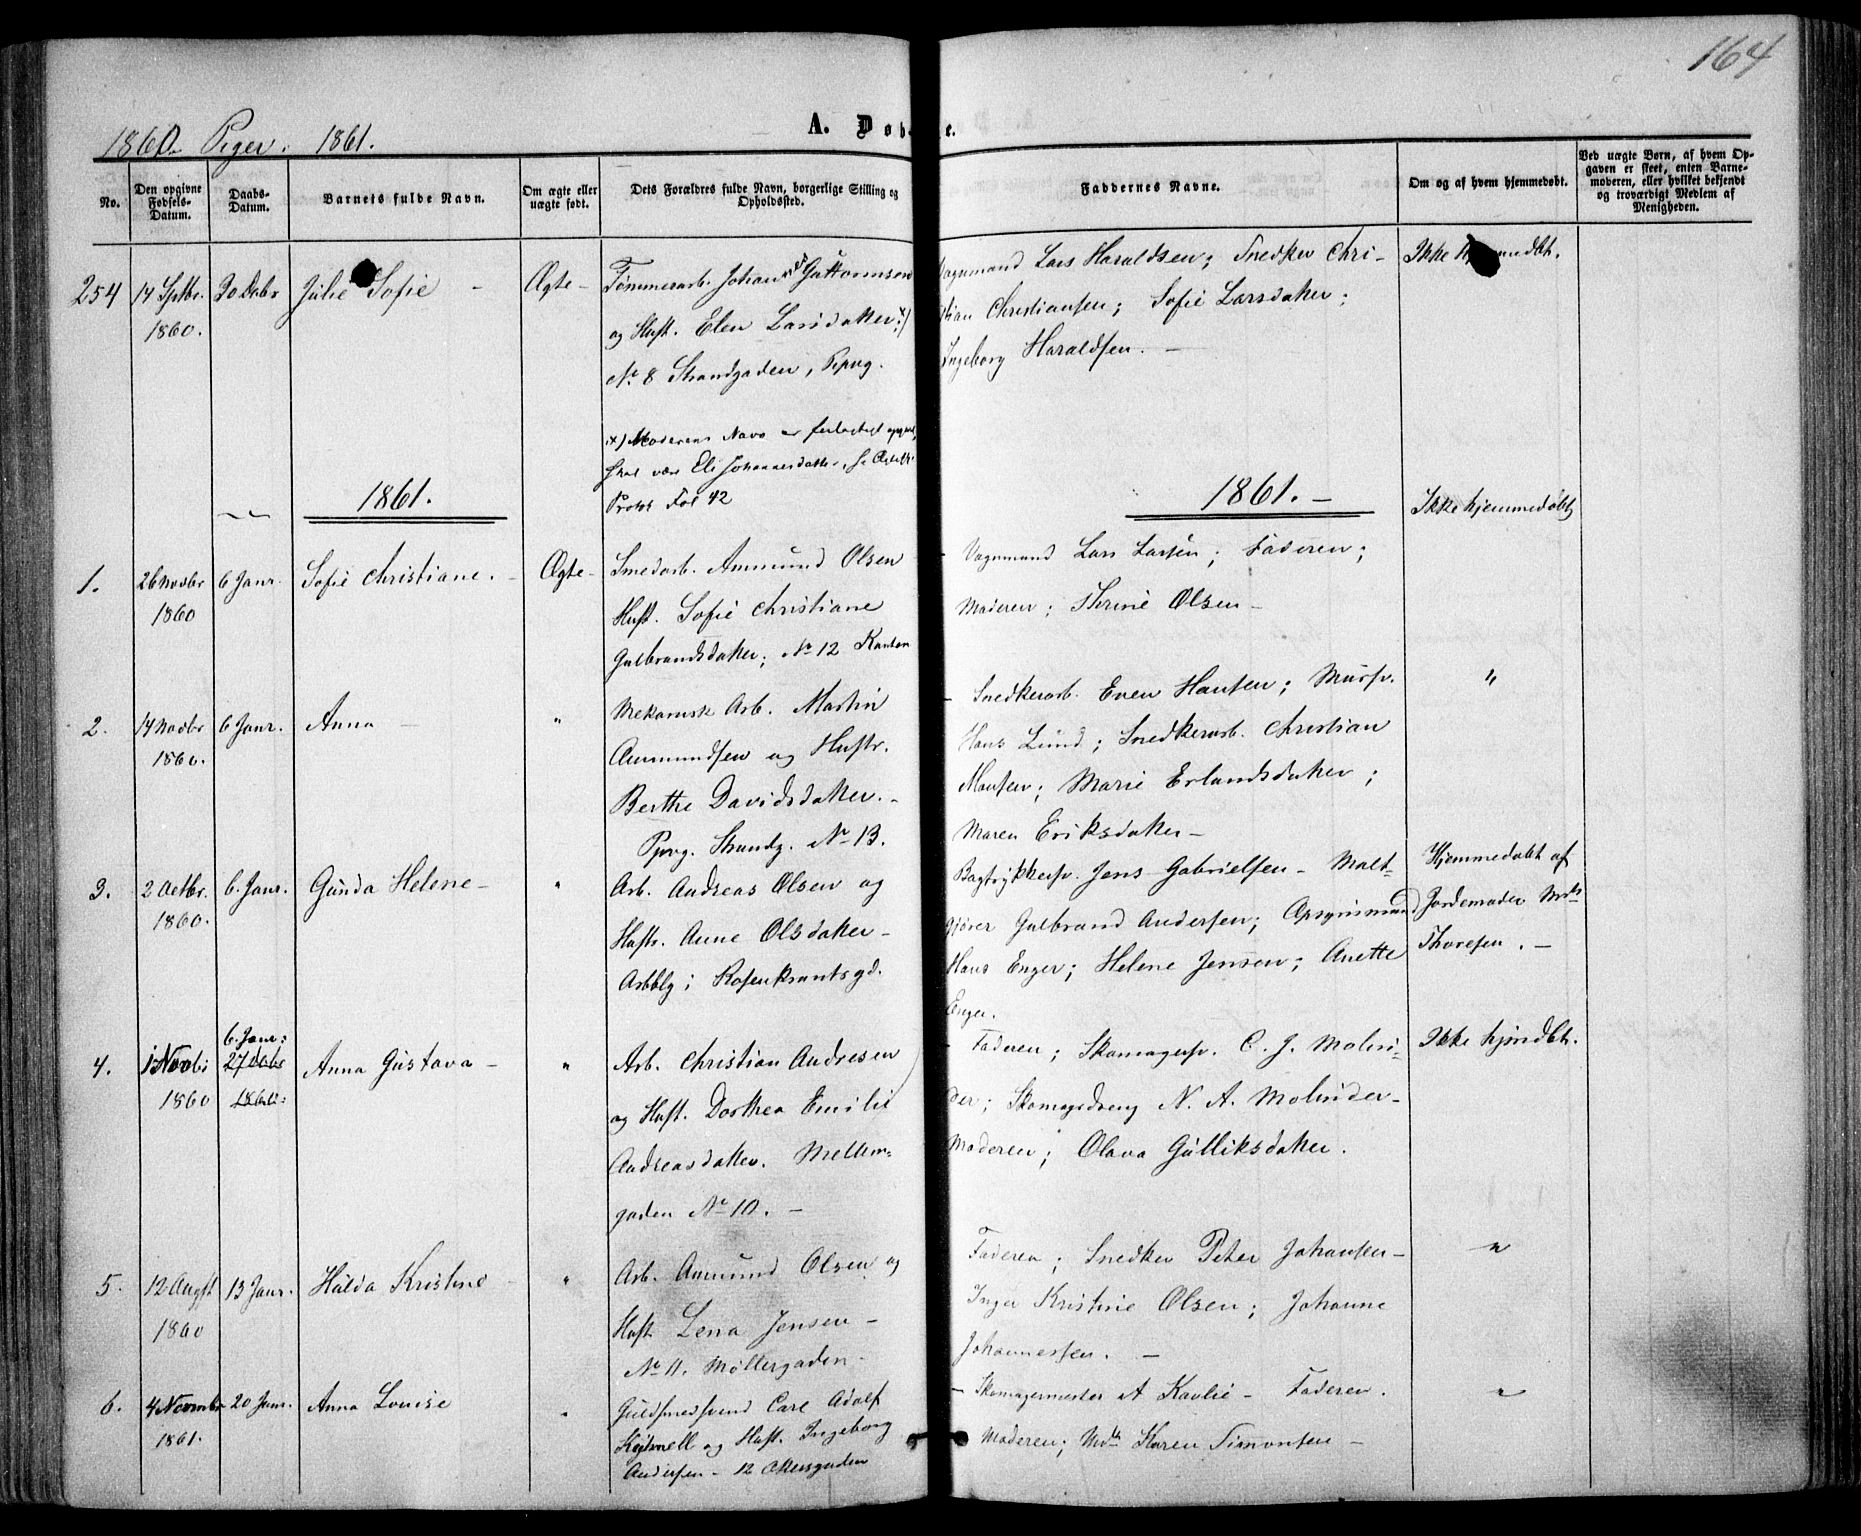 164
1860. Piger. 1861.
A. Døbte.
No.
Den opgivne Fødsels-Datum.
Daabs-Datum.
Barnets fulde Navn.
Om ægte eller uægte født.
Dets Forældres fulde Navn, borgerlige Stilling og Opholdssted.
Faddernes Navne.
Om og af hvem hjemmedøbt.
Ved uægte Børn, af hvem Opgaven er skeet, enten Barnemoderen, eller hvilket bekjendt og troværdigt Medlem af Menigheden.
254 14 Septbr. 1860. 30 Debr Julie Sofie - Ægte -
Tømmerarb. Johan Guttormsen
og Hust. Elen Larsdatter x)
No. 8 Strandgaden, Ppvg.
x) Moderens Navn er feilagtigt
skal være Eli Johannesdatter,
Protok Fol 42
Vognmand Lars Haraldsen; Snedker Chri-
stian Christiansen; Sofie Larsdatter;
Ingeborg Haraldsen. -
Ikke Hjemmedbt.
1861.
1861. -
1. 26 Novbr 1860 6 Janr. Sofie Christiane. - Ægte -
Smedarb. Ammund Olsen
Hust. Sofie Christiane
Gulbrandsdatter; No 12
Vognmand Lars Larsen; Faderen;
Moderen; Thrine Olsen -
Ikke hjemmedøbt
2. 14 Novbr 1860. 6 Janr. Anna - "
Mekanisk Arb. Martin
Ammundsen og Hustr.
Berthe Davidsdatter. -
Ppvg. Strandg. No 13.
- Snedkerarb. Even Hansen; Mursv.
Hans Lund; Snedkerarb. Christian
Hansen; Marie Erlandsdatter;
Maren Eriksdatter -
"
3. 2 Octbr. 1860. 6. Janr. Gunda Helene - "
Arb. Andreas Olsen og
Hustr. Anne Olsdatter -
Arbblg i Rosenkrantsgd.
Bogtrykkersv. Jens Gabrielsen - Malt-
gjører Gulbrand Andersen; Opsynsmand
Hans Enger; Helene Jensen; Anette
Enger.
Hjemmedøbt af
Jordemoder
Thoresen. -
4. 1 Novbr 1860 6. Janr: 27 Debr Anna Gustava - "
Arb. Christian Andresen
og Hust. Dorthea Emilie
Andreasdatter. Mellem-
gaden No 10. -
- Faderen; Skomagersv. C. J. Molin-
der; Skomagerdreng N. A. Molinder -
Moderen; Olava Gulliksdatter.
Ikke hjmdbt.
5. 12 Augst 1860 13 Janr. Hulda Kristine - "
Arb. Ammund Olsen og
Hust. Lena Jensen -
No 11. Møllergaden -
Faderen; Snedker Peter Johansen -
Inger Kristine Olsen; Johanne
Johannessen. -
"
6. 4 Novmbr 1861. 20 Janr. Anna Louise "
Guldsmedsvend Carl Adolf
og Hust. Ingeborg
Andersen - 12 Akersgaden
- Skomagermester A Kavlie - Faderen.
Moderen; Karen Simonsen -
"